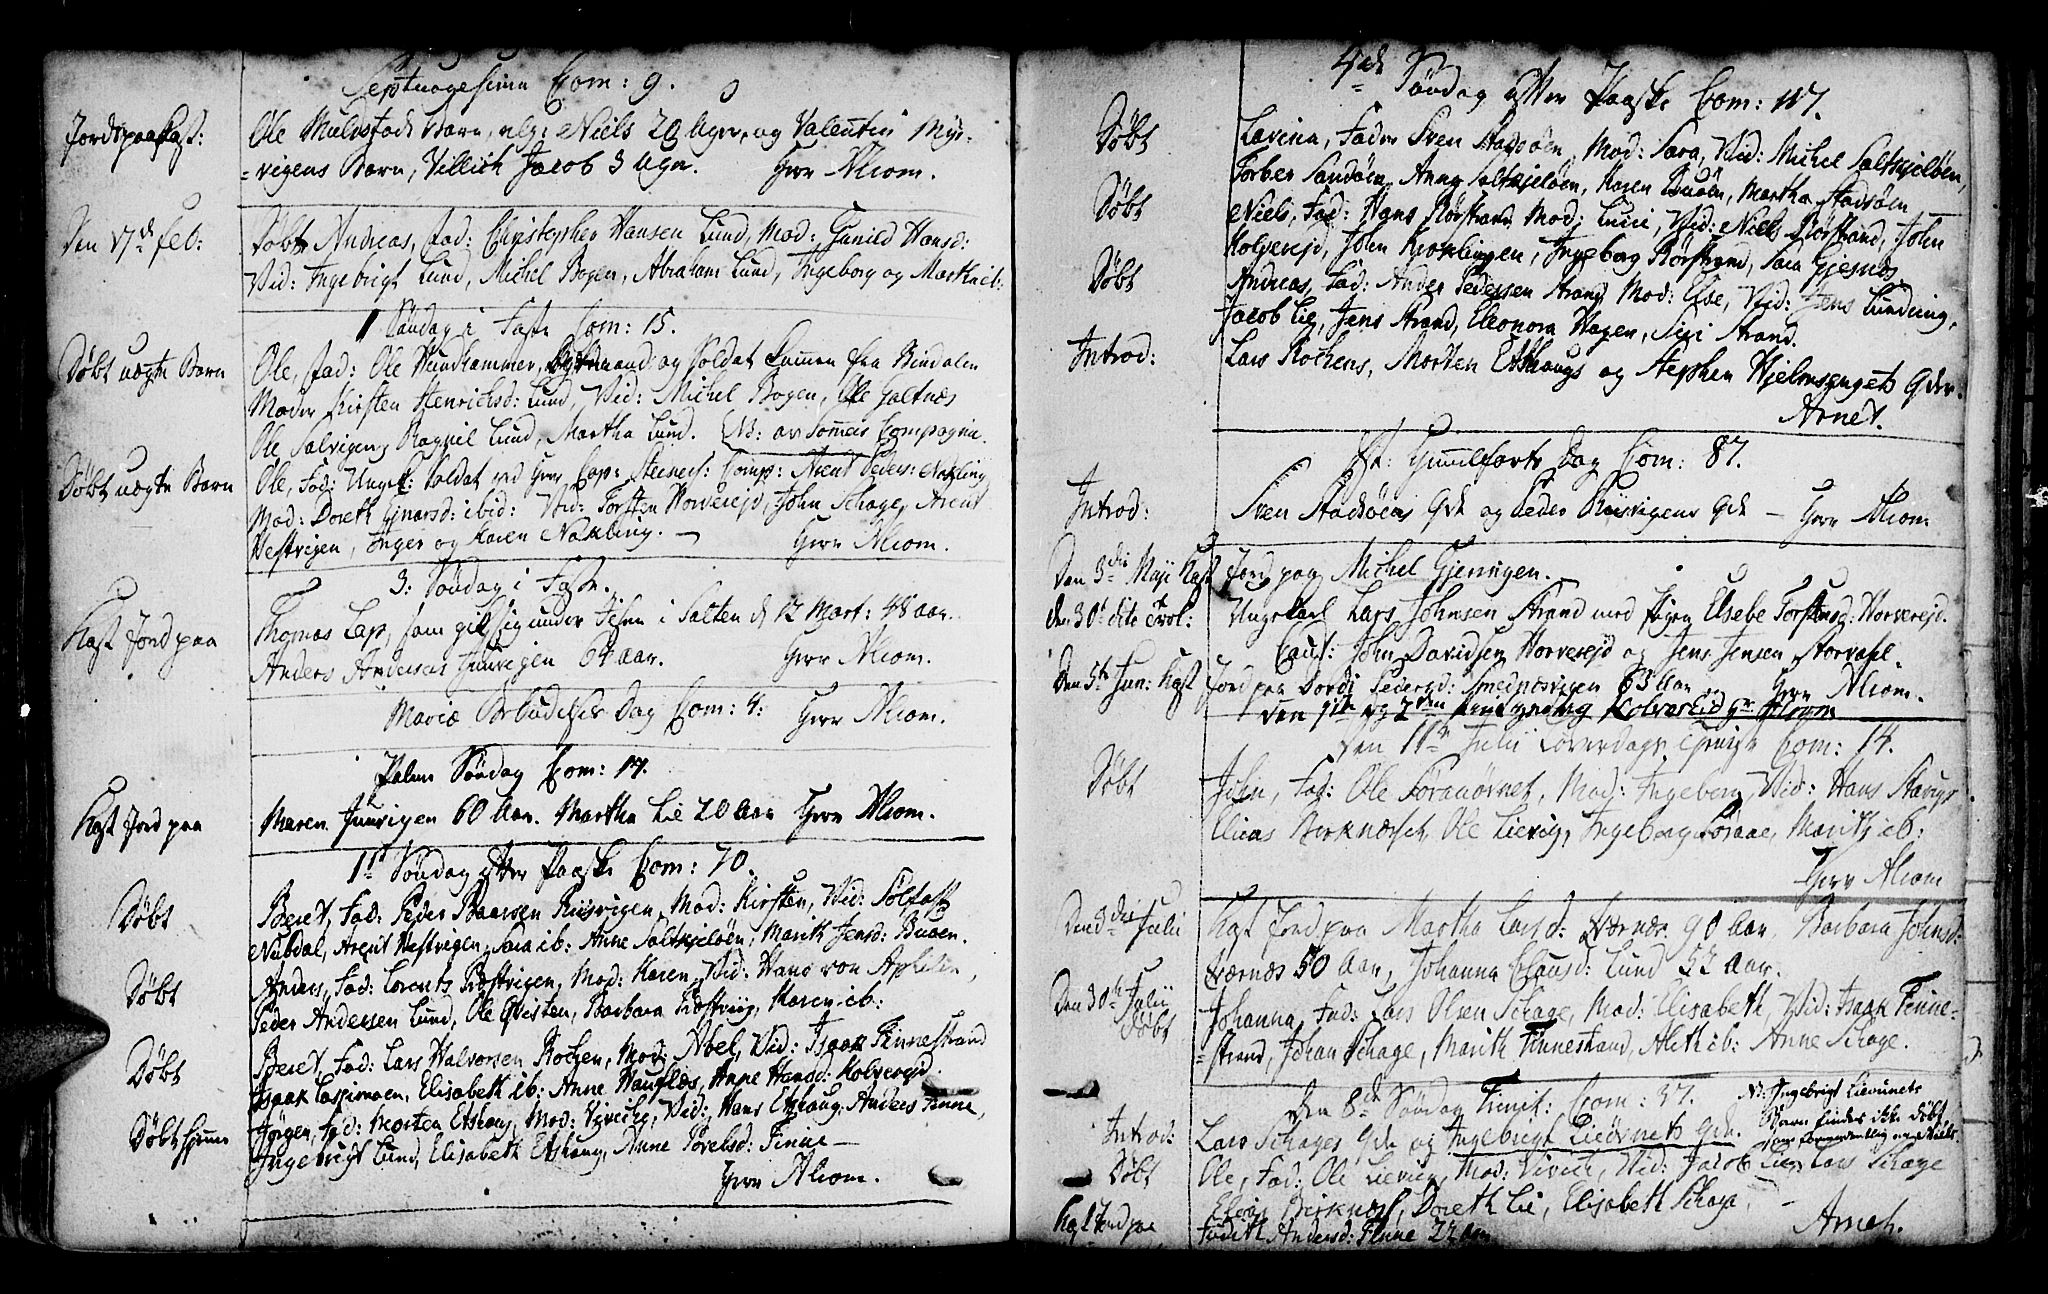 Septuagesima Com: 9.
Jordspaakast: Ole Mulvstads Barn, nlg: Niels 20 Uger, og Valentin Myr-
=vigens Barn, Villich Jacob 3 Uger. Herr Aliom.
Den 17de Feb: Døbt Andreas, Fad: Christopher Hansen Lund, Mod: Gunild Hansd:
Vid: Ingebrigt Lund, Michel Bogen, Abraham Lund, Ingeborg og Marthe ib:
1 Søndag i Faste Com: 15.
Døbt uægte Barn Ole, Fad: Ole Hundhammer, og Soldat fra Bindalen
Moder Kirsten Henrichsd: Lund, Vid: Michel Bogen, Ole Galtnæs
Ole Salvigen, Ragnil Lund, Martha Lund. Compagnie.
Døbt uægte Barn Ole, Fad: Ungk: Soldat ved Herr Cap: Comp: Arent Peders: Nakling
Mod: Doreth ibid: Vid: Torsten Horverejd, John Schage, Arent
Vestvigen, Inger og Karen Nakling. — Herr Aliom.
3: Søndag i Faste.
Kast Jord paa Thomas Lap, som i Salten d 12 Mart: 48 aar.
Anders Andersen Juuvigen 64 aar. Herr Aliom.
Mariæ Bebudelses Dag Com: 4: Herr Aliom.
Palme Søndag Com: 17.
Kast Jord paa Maren Juuvigen 60 Aar. Martha Lie 20 Aar Herr Aliom.
1st Søndag efter Paaske Com: 70.
Døbt Beret, Fad: Peder Baarsen Riisvigen, Mod: Kirsten, Vid: Sølfast
Nubdal, Arent Vestvigen, Sara ib: Anne Saltkjeløen, Marith Jensd: Buøen.
Døbt Anders, Fad: Lorents Præstvigen, Mod: Karen, Vid: Hans von Aphelen,
Peder Andersen Lund, Ole Qvisten, Barbara Præstviig, Karen ib:
Døbt Beret, Fad: Lars Halvorsen Rochen, Mod: Abel, Vid: Isaak Finnestrand
Isaak Elisabeth ib: Anne Hauflæs, Anne Hansd: Kolverejd.
Døbt hjemme Jørgen, Fad: Morten Etshaug, Mod: Viveche, Vid: Hans Etshaug, Anders Finne,
Ingebrigt Lund, Elisabeth Etshaug, Anne Finne —
Herr Aliom.
4de Søndag efter Paaske Com: 117.
Døbt Lavina, Fader Sven Stadsøen, Mod: Sara, Vid: Michel Saltkjeløen,
Torber Sandøen, Anne Saltkjeløen, Karen Buøen, Martha Stadsøen
Døbt Niels, Fad: Hans Rørstrand, Mod: Lucie, Vid: Niels Rørstrand, John
Kolverejd, John Kroklingen, Ingeborg Rørstrand, Sara Gjesnes
Døbt Andreas, Fad: Ander Pedersen Strand, Mod: Else, Vid: Jens Lundring,
Jacob Lie, Jens Strand, Eleonora Hagen, Siri Strand.
Introd: Lars Rochens, Morten Etshaugs og Stephen Hjelmsengets qdr:
Arnet.
Chr: Himmelfarts Dag Com: 87.
Introd: Sven Stadsøens qde og Peder Riisvigens qde — Herr Aliom
Den 3die Maji kast Jord paa Michel Gjeringen.
den 30te dito Cvol: Ungekarl Lars Johnsen Strand med Pigen Elsebe Torstensd: Horverejd.
Caut: John Davidsen Horverejd og Jens Jensen Storvahl.
Den 5te Jun: kast Jord paa Dordi Pedersd: Smednesvigen 63 Aar Herr Aliom.
Kolvereid Hr Aliom
Den 11te Julii Løverdags Com: 14.
Døbt John, Fad: Ole Søraaørnet, Mod: Ingeborg, Vid: Hans
Elias Birknæsset, Ole Lievig, Ingeborg Søraae, Marith ib:
Herr Aliom
Julii Kast Jord paa Martha Larsd: Værnæs 90 Aar, Barbara Johnsd:
Værnæs 50 Aar, Johanna Clausd: Lund 52 Aar.
Den 30te Julii
Døbt Johanna, Fad: Lars Olsen Schage, Mod: Elisabeth, Vid: Isaak Finne=
=strand, Johan Schage, Marith Finnestrand, Aleth ib: Anne Schage.
Den 8de Søndag Trinit: Com: 37. NB: Ingebrigt Lieørnets
Barn findes ikke døbt
Introd: Lars Schages qde og Ingebrigt Lieørnets qde.
Døbt Ole, Fad: Ole Lievig, Mod: Vivich, Vid: Jacob Lie, Lars Schage
Elias Birknæsset, Doreth Lie, Elisabeth Schage, — Arnet.
Kast Jord paa Judith Andersd: Finne 22 aar